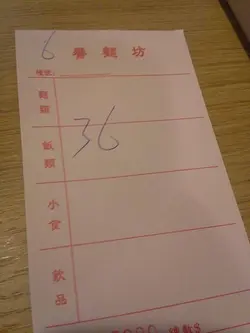 6 譽麵坊
檯號:
麵類
36
飯類
小食
飲品